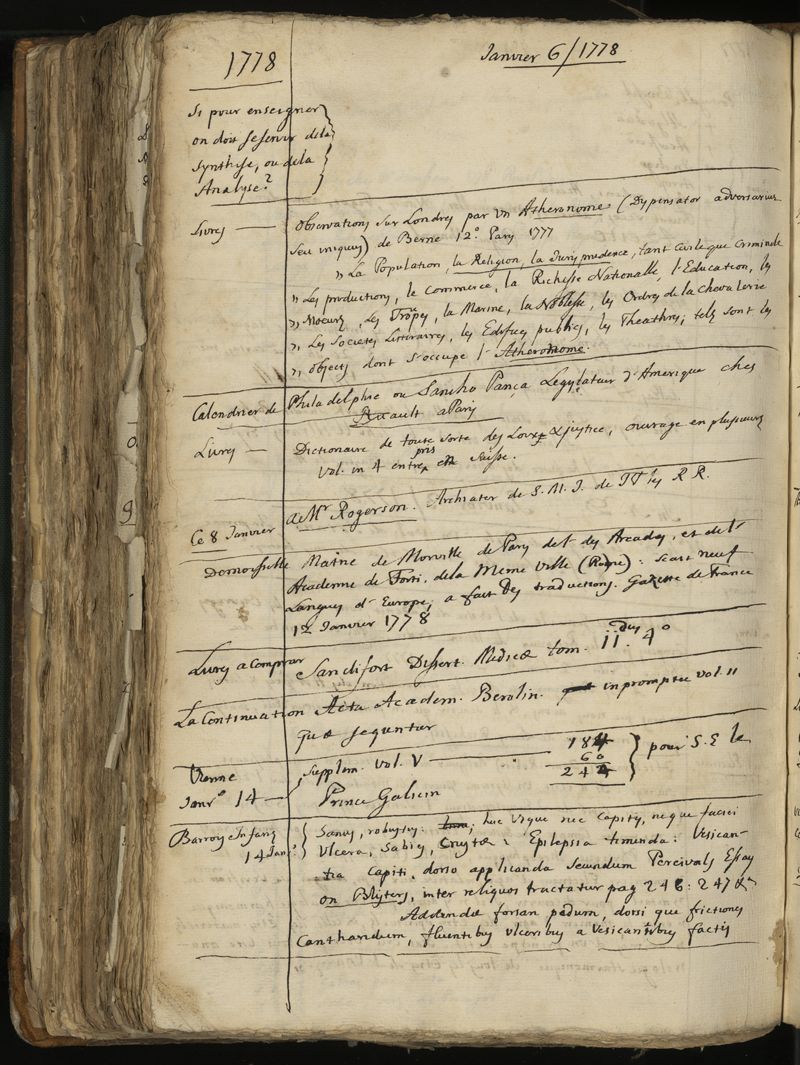 1778
Janvier 6/1778
Si pour enseigner
on doit se servir de la
Synthese, ou de la
Analyse?
Livres — Observations sur Londres par un Atheronome (Dypensator adversarius
seu iniquus) de Berne 12°. Parys 1777
" La Population, la Religion, la Jurisprudence, tant Civile que Criminele
" Les productions, le Commerce, la Richesse Nationalle, l'Education, les
" Moeurs, Les Troupes, la Marine, la Noblesse, les Ordres de la Chevalerie
" Les Societes Litteraires, les Edifices publics, les Theathres; tels sont les
" objects dont s'occupe l'Atheronome.
Calendrier de Philadelphie ou Sancho Pança Legislateur d'Amerique ches
Ruault a Parys
Livres — Dictionaire de toute sorte des Loix & justice, ouvrage en plusieurs
Vol. in 4 entrepris en Suisse.
Ce 8 Janvier de Mr Rogerson. Archiater de S. M. I. de TT les R R.
Demoiselle Maine de Morville de Parys de l' des Arcades, et de l'
Academie de Forti, de la Meme Ville (Rome): scait neuf
Langues d'Europe, a fait des traductions. Gazette de France
12 Janvier 1778
Livres a Comprar Sandifort Dissert. Medicæ tom. iidus 4°
La Continuation Acta Academ. Berolin. in promptu vol. 11
quæ sequntur
Vienne
Janro 14 — Supplem. Vol. V — 184
60
244
} pour S. E le
Prince Galicin
Barroy Infans
14 Janr. } Sanus, robustus: huc usque nec capitis, neque faciei
Ulcera, Scabies, Crustæ: Epilepsia timenda: Vesican-
tia capiti, dorso applicanda secundum Percivals Essay
on Blysters, inter reliquos tractatur pag 246: 247 &
Addendæ forsan pedum, dorsi que frictiones
Cantharidum, fluentibus ulceribus a Vesicantibus factis